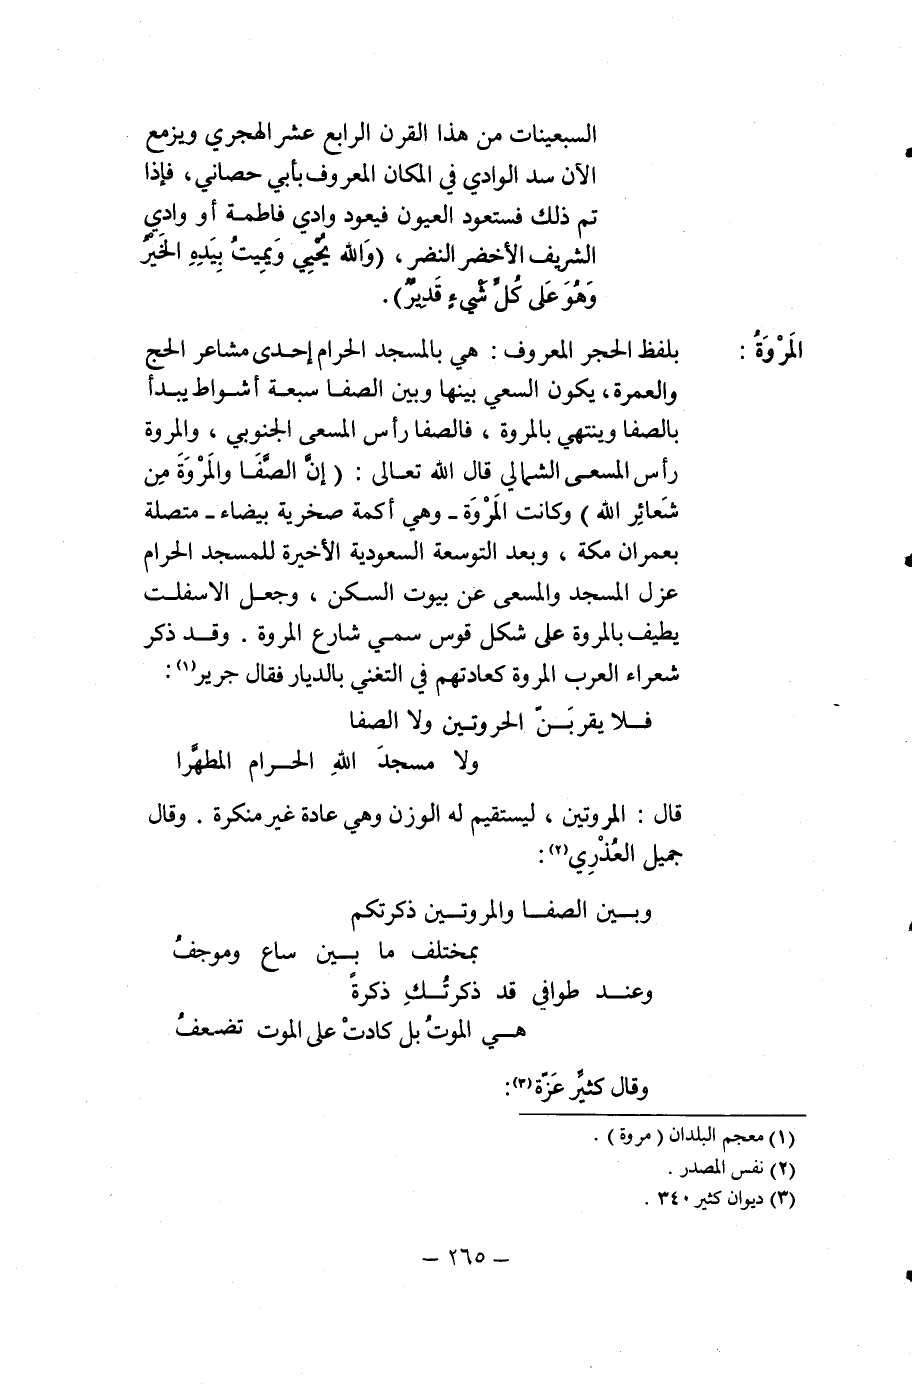 السبعينات من هذا القرن الرابع عشر الهجري ويزمع
الآن سد الوادي في المكان المعروف بأبي حصاني، فإذا
تم ذلك فستعود العيون فيعود وادي فاطمة أو وادي
الشريف الأخضر النضر، (وَالله يُحْيِي وَيمِيتُ بِيَدِهِ الخَيْرُ
وَهُوَ عَلى كُلِّ شَيءٍ قَدِيرٌ).
المَرْوَةُ : بلفظ الحجر المعروف : هي بالمسجد الحرام إحدى مشاعر الحج
والعمرة، يكون السعي بينها وبين الصفا سبعة أشواط يبدأ
بالصفا وينتهي بالمروة ، فالصفا رأس المسعى الجنوبي ، والمروة
رأس المسعى الشمالي قال الله تعالى : ( إنَّ الصَّفَا والمَرْوَةَ مِن
شَعائِرِ الله ) وكانت المَرْوَة ـ وهي أكمة صخرية بيضاء ـ متصلة
بعمران مكة ، وبعد التوسعة السعودية الأخيرة للمسجد الحرام
عزل المسجد والمسعى عن بيوت السكن ، وجعل الاسفلت
يطيف بالمروة على شكل قوس سمي شارع المروة . وقد ذكر
شعراء العرب المروة كعادتهم في التغني بالديار فقال جرير(١) :
فلا يقربَنّ الحروتين ولا الصفا
ولا مسجدَ اللهِ الحرام المطهَّرا
قال : المروتين ، ليستقيم له الوزن وهي عادة غير منكرة . وقال
جميل العُذْرِي(٢) :
وبين الصفا والمروتين ذكرتكم
بمختلف ما بين ساع وموجفُ
وعند طوافي قد ذكرتُكِ ذكرةً
هي الموتُ بل كادتْ على الموت تضعفُ
وقال كثيِّر عَزّة(٣) :
(١) معجم البلدان ( مروة ) .
(٢) نفس المصدر .
(٣) ديوان كثير ٣٤٠ .
– ٢٦٥ –